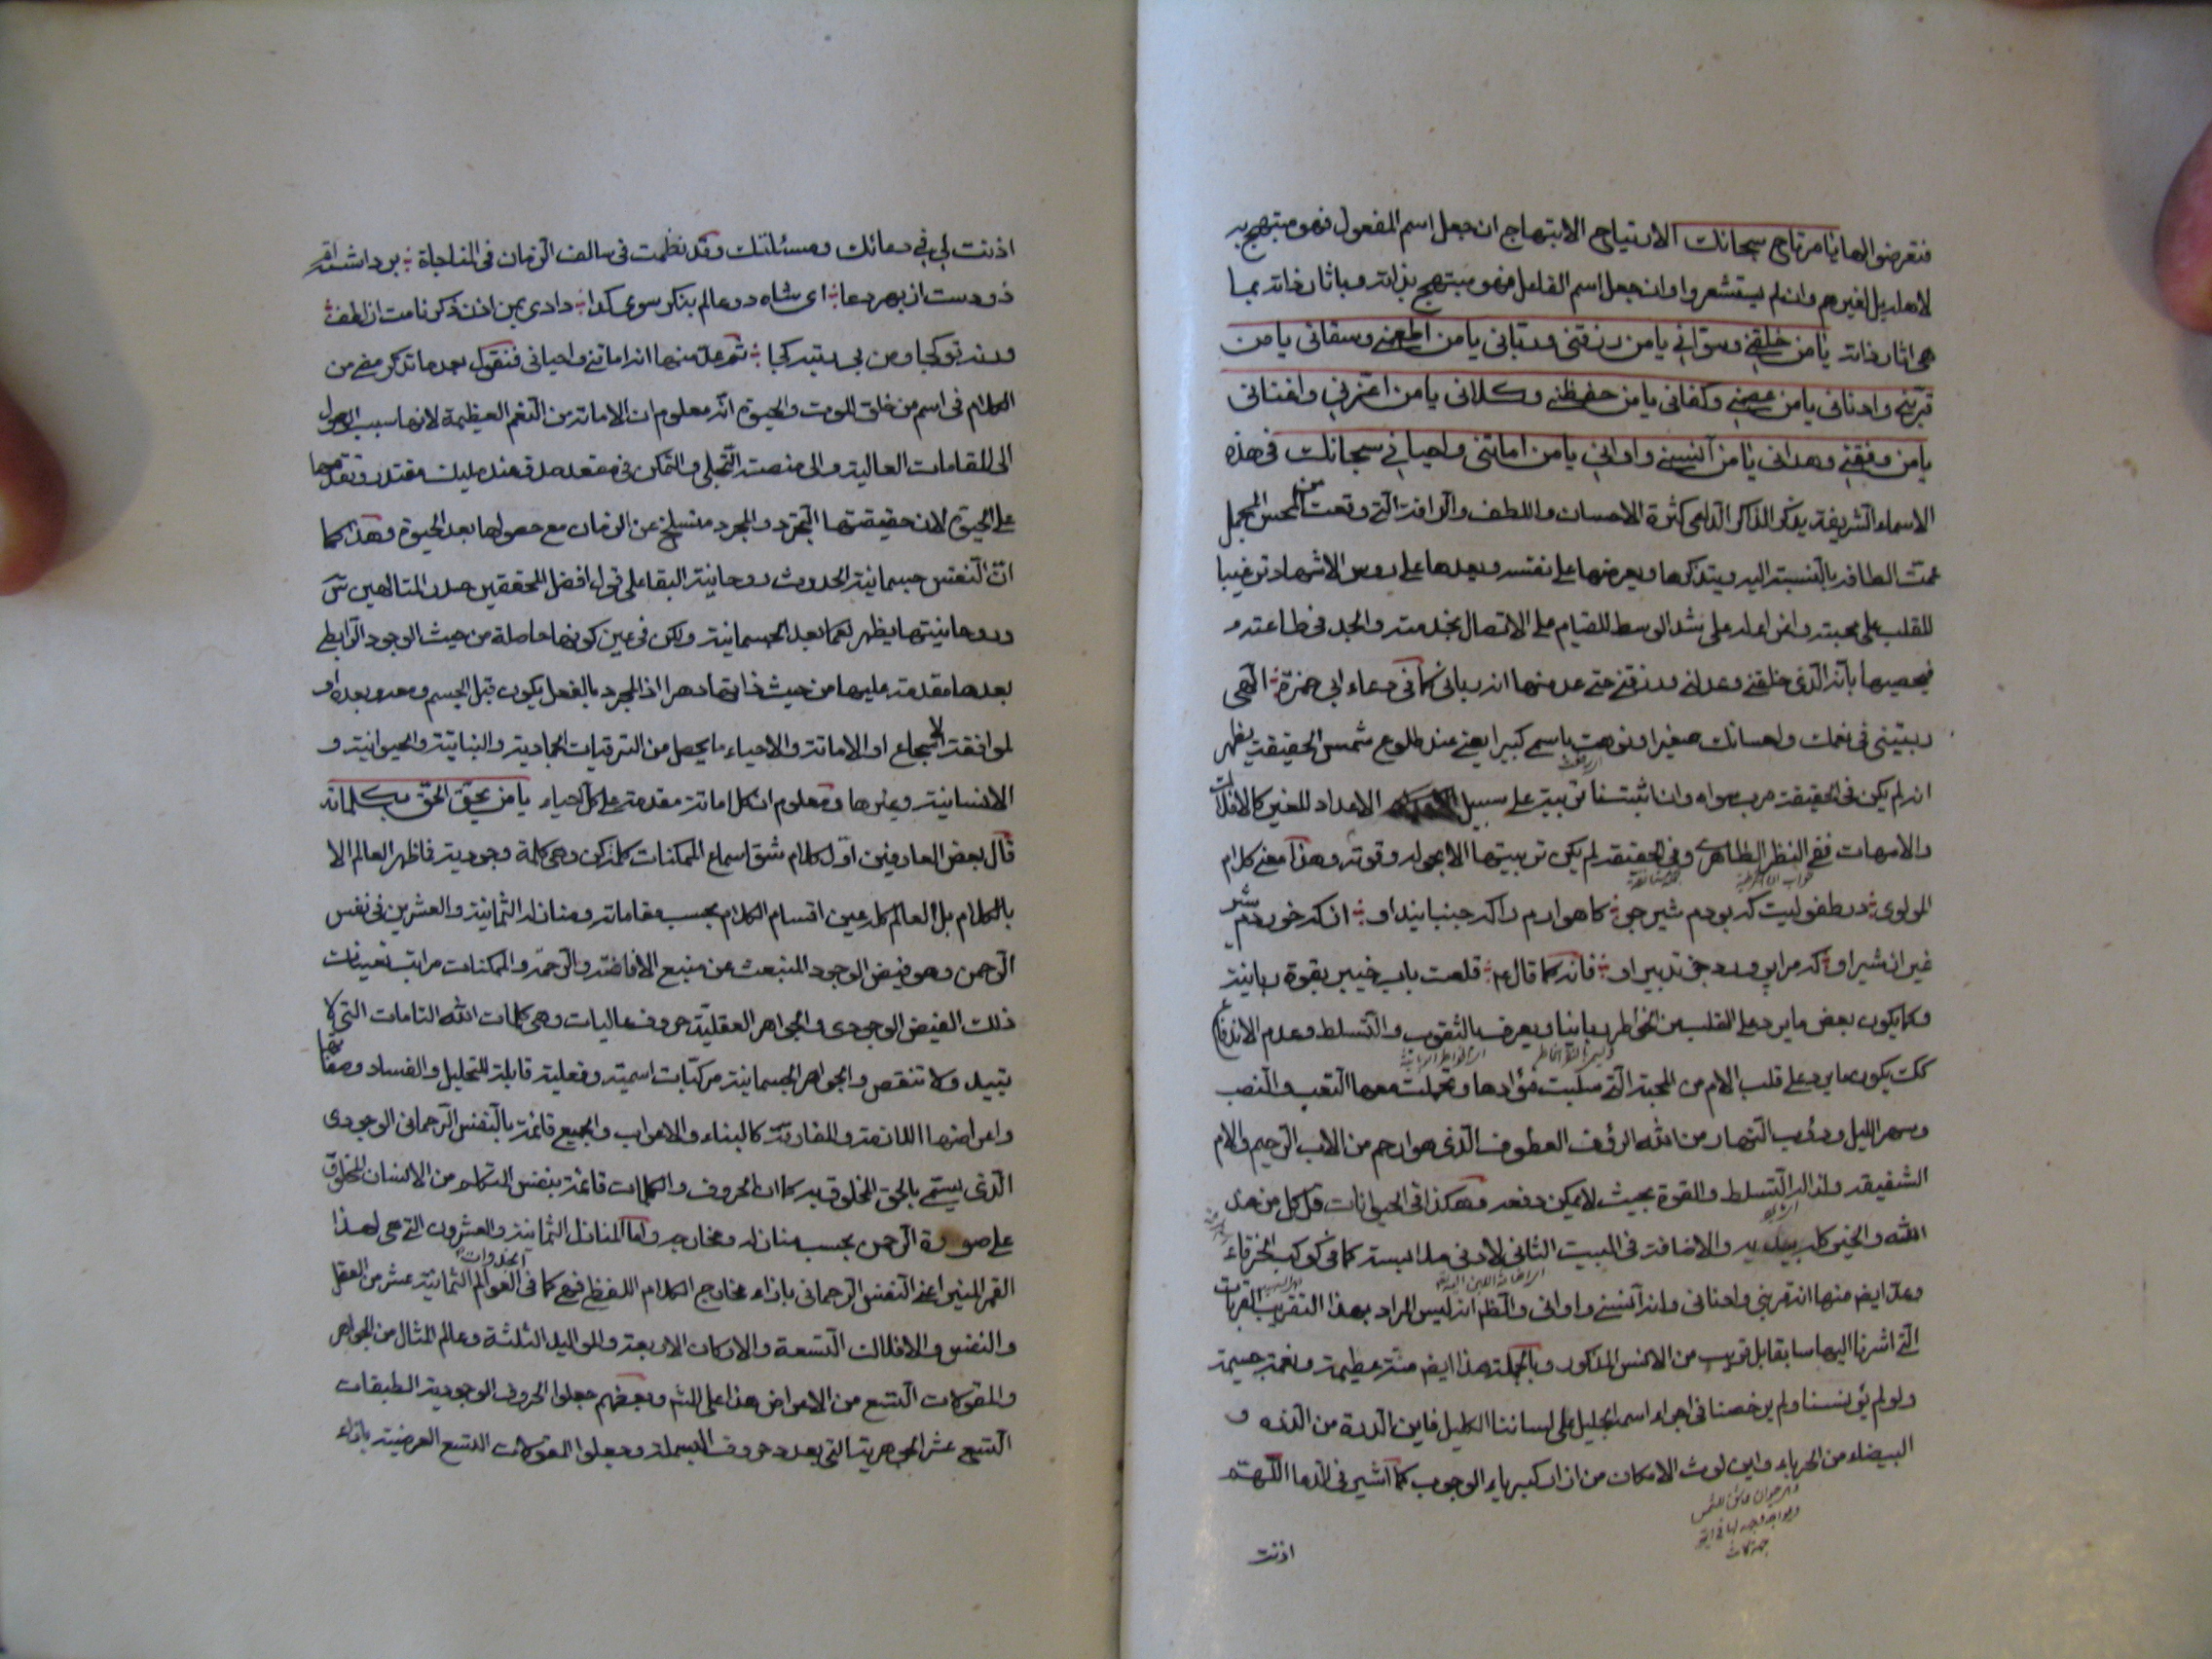 فتعرضوا لها يا مرتاح سبحانك الارتياح الابتهاج ان جعل اسم المفعول فهو مبتهج به
لاهله بل لغيرهم وان لم يستشعروا وان جعل اسم الفاعل فهو مبتهج بذاته وباثار ذاته بما
هي اثار ذاته يا من خلقني وسوّاني يا من رزقني وربّاني يا من اطعمني وسقاني يا من
قربّني وادناني يا من عصمني وكفاني يا من حفظني وكلاني يا من اعزّني واغناني
يا من وفّقني وهداني يا من آنسني واواني يا من اماتني واحياني سبحانك في هذه
الاسماء الشريفة يذكر الذاكر الداعي كثرة الاحسان واللطف والرافة التي وقعت من المحسن المجمل
عمّت الطافه بالنسبة اليه ويتذكرها ويعرضها على نفسه ويعدها على روس الاشهاد ترغيبا
للقلب على محبته واغراء له على شد الوسط للقيام على الاتصال بخدمته والجد في طاعته و
فيحصيها بأنه الذي خلقني وعدلني ورزقني حتى عد منها انه رباني كما في دعاء ابي حمزة الهي
ربيتني في نعمك واحسانك صغيرا ونوهت باسمي كبيرا يعني عند طلوع شمس الحقيقة يظهر
انه لم يكن في الحقيقة مرب سواه وان اثبتنا تربية على سبيل الاعداد للغير كالافلاك
والامهات ففي النظر الظاهري وفي الحقيقة لم يكن تربيتها الا بحوله وقوته وهذا معنى كلام
المولوي در طفوليت كه بودم شير جو كاهوارم را كه جنبانيد او از كه خوردم شير
غير از شير او كه مرا پرورد جز تدبير او فانه كما قال ع قلعت باب خيبر بقوة ربانية
وكما يكون بعض ما يرد على القلب من الخواطر ربانيا ويعرف بالثقوب والتسلط وعدم الاندفاع
كك يكون ما يرد على قلب الام من المحبة التي سلبت فؤادها وتحملت معها التعب والنصب
وسهر الليل ودؤب النهار من الله الرؤف العطوف الذي هو ارحم من الاب الرحيم والام
الشفيقة ولذا له التسلط والقوة بحيث لا يمكن دفعه وهكذا في الحيوانات قل كل من عند
الله والخير كله بيديه والاضافة في البيت الثاني لادنى ملابسة كما في كوكب الخرقاء
وعدّ ايض منها انه قربني وادناني وانه آنسني واواني والظم انه ليس المراد بهذا التقريب القربات
التي اشرنا اليها سابقا بل قريب من الانس المذكور وبالجملة هذا ايض منة عظيمة ونعمة جسيمة
ولو لم يؤنسنا ولم يرخصنا في اجراء اسمه الجليل على لساننا الكليل فاين الدرة من الذرة و
البيضاء من الحرباء واين لوث الامكان من ازار كبرياء الوجوب كما اشير في الدعا اللهم
اذنت
اذنت لي في دعائك ومسئلتك وقد نظمت في سالف الزمان في المناجاة برداشته
ذو دست از بهر دعا اى شاه دو عالم بنكر سوى كدا دادى بمن اذن ذكر نامت از لطف
ورنه تو كجا و من بى رتبه كجا ثم عدّ منها انه اماتني واحياني فنقول بعد ما تذكر معنى من
الكلام في اسم من خلق الموت والحيوة انه معلوم ان الاماتة من النعم العظيمة لانها سبب الوصول
الى المقامات العالية والى منصة التجلي والتمكن في مقعد صدق عند مليك مقتدر وتقدمها
على الحيوة لان حقيقتها التجرد والمجرد منسلخ عن الزمان مع حصولها بعد الحيوة وهذا كما
انّ النفس جسمانية الحدوث روحانية البقا على قول افضل المحققين صدر المتالهين س
وروحانيتها يظهر لها بعد الجسمانية ولكن في عين كونها حاصلة من حيث الوجود الرابطي
بعدها مقدمة عليها من حيث ذاتها دهرا اذ المجرد بالفعل يكون قبل الجسم ومعه وبعده او
لموافقة الاسجاع او الاماتة والاحياء ما يحصل من الترقيات الجمادية والنباتية والحيوانية و
الانسانية وغيرها ومعلوم ان كل اماتة مقدمة على كل احياء يا من يحق الحق بكلماته
قال بعض العارفين اوّل كلام شق اسماع الممكنات كلمة كن وهي كلمة وجودية فما ظهر العالم الا
بالكلام بل العالم كله عين اقسام الكلام بحسب مقاماته ومنازله الثمانية والعشرين في نفس
الرحمن وهو فيض الوجود المنبعث عن منبع الافاضة والرحمة والممكنات مراتب تعينات
ذلك الفيض الوجودي والجواهر العقلية حروف عاليات وهي كلمات الله التامات التي لا
تبيد ولا تنقص والجواهر الجسمانية مركبات اسمية وفعلية قابلة للتحليل والفساد وصفاتها
واعراضها اللازمة والمفارقة كالبناء والاعراب والجميع قائمة بالنفس الرحماني الوجودي
الذي يسمى بالحق المخلوق به كما ان الحروف والكلمات قائمة بنفس المتكلم من الانسان المخلوق
على صورة الرحمن بحسب منازله ومخارجه واما المنازل الثمانية والعشرون التي هي لهذا
القمر المنير اعني النفس الرحماني بازاء مخارج الكلام اللفظي فهي كما في العوالم الثمانية عشر من العقل
والنفس والافلاك التسعة والاركان الاربعة والمواليد الثلثة وعالم المثال من الجواهر
والمقولات التسع من الاعراض هذا على المشهور وبعضهم جعلوا الحروف الوجودية الطبقات
التسع عشر الجوهرية التي بعدد حروف البسملة وجعلوا المقولات التسع العرضية بازاء